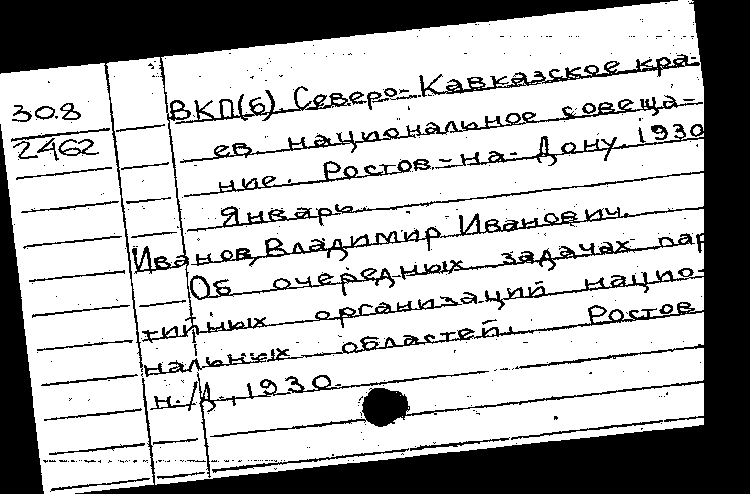 308
2462
ВКП(б). Северо-Кавказское кра-
ев. национальное совеща-
ние. Ростов-на-Дону. 1930
Январь.
Иванов, Владимир Иванович.
Об очередных задачах пар
тийных организаций нацио-
нальных областей. Ростов
н./Д., 1930.